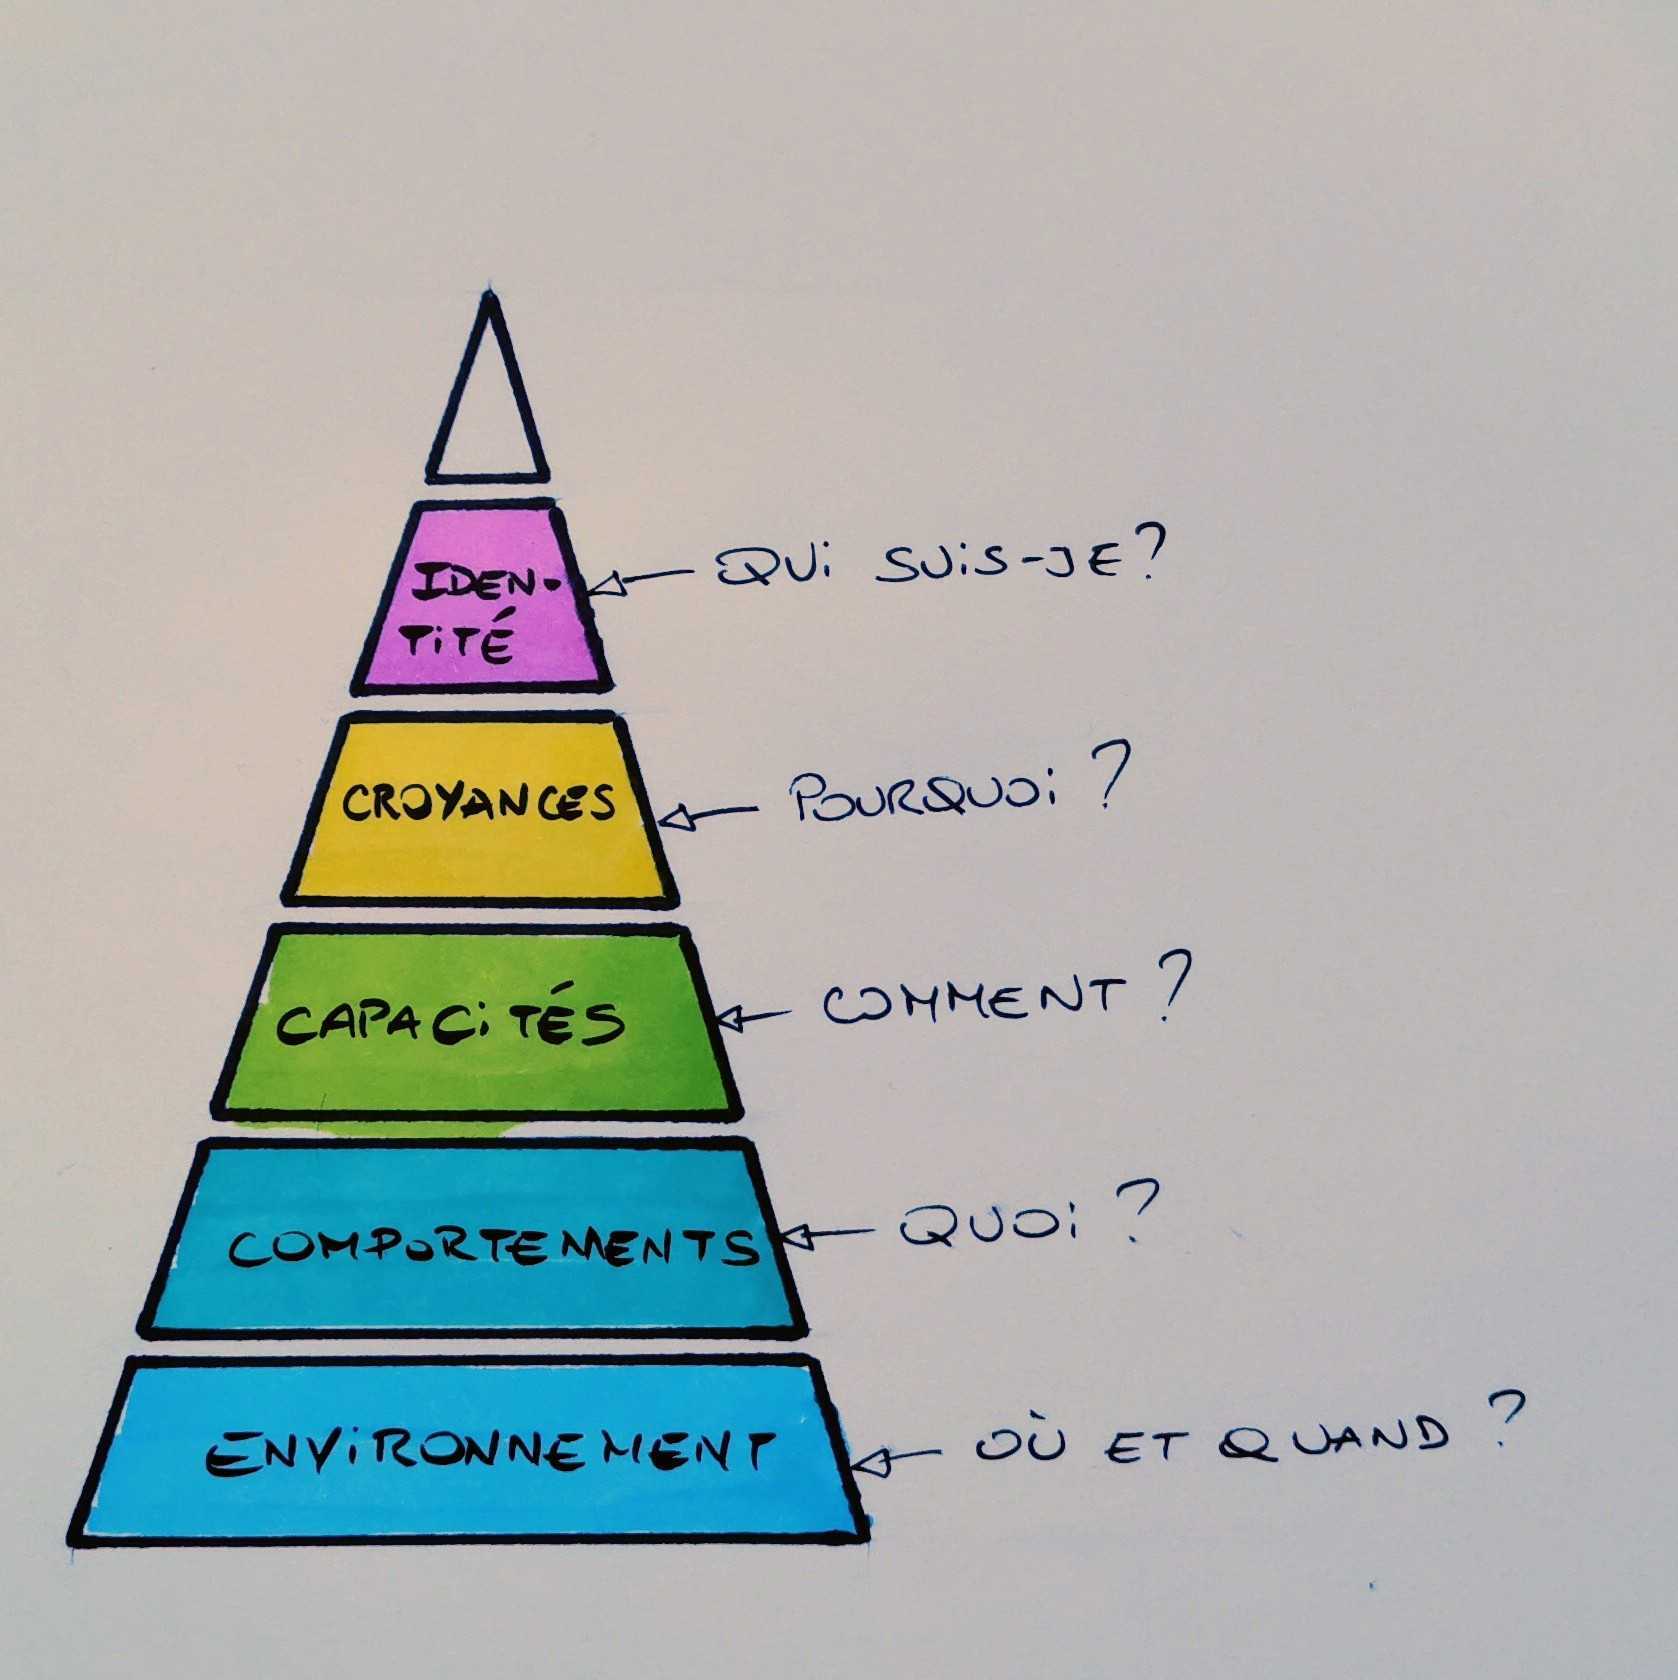 IDEN-
TITÉ
QUI SUIS-JE?
CROYANCES
POURQUOI ?
CAPACITÉS
COMMENT ?
COMPORTEMENTS
QUOI ?
ENVIRONNEMENT
OÙ ET QUAND ?